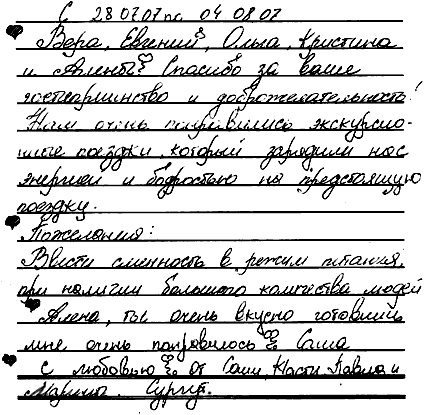 С 28.07.07 по 04.08.07
Вера, Евгений, Ольга, Кристина
и Алена! Спасибо за ваше
гостеприимство и доброжелательность!
Нам очень понравились экскурсио-
нные поездки, который зарядили нас
энергией и бодростью на предстоящую
поездку.
Пожелания:
Ввести сменность в режим питания,
при наличии большого количества людей
Алена, ты очень вкусно готовишь
мне очень понравилось Саша
С любовью от Саши, Насти, Павла и
Марины. Сургут.